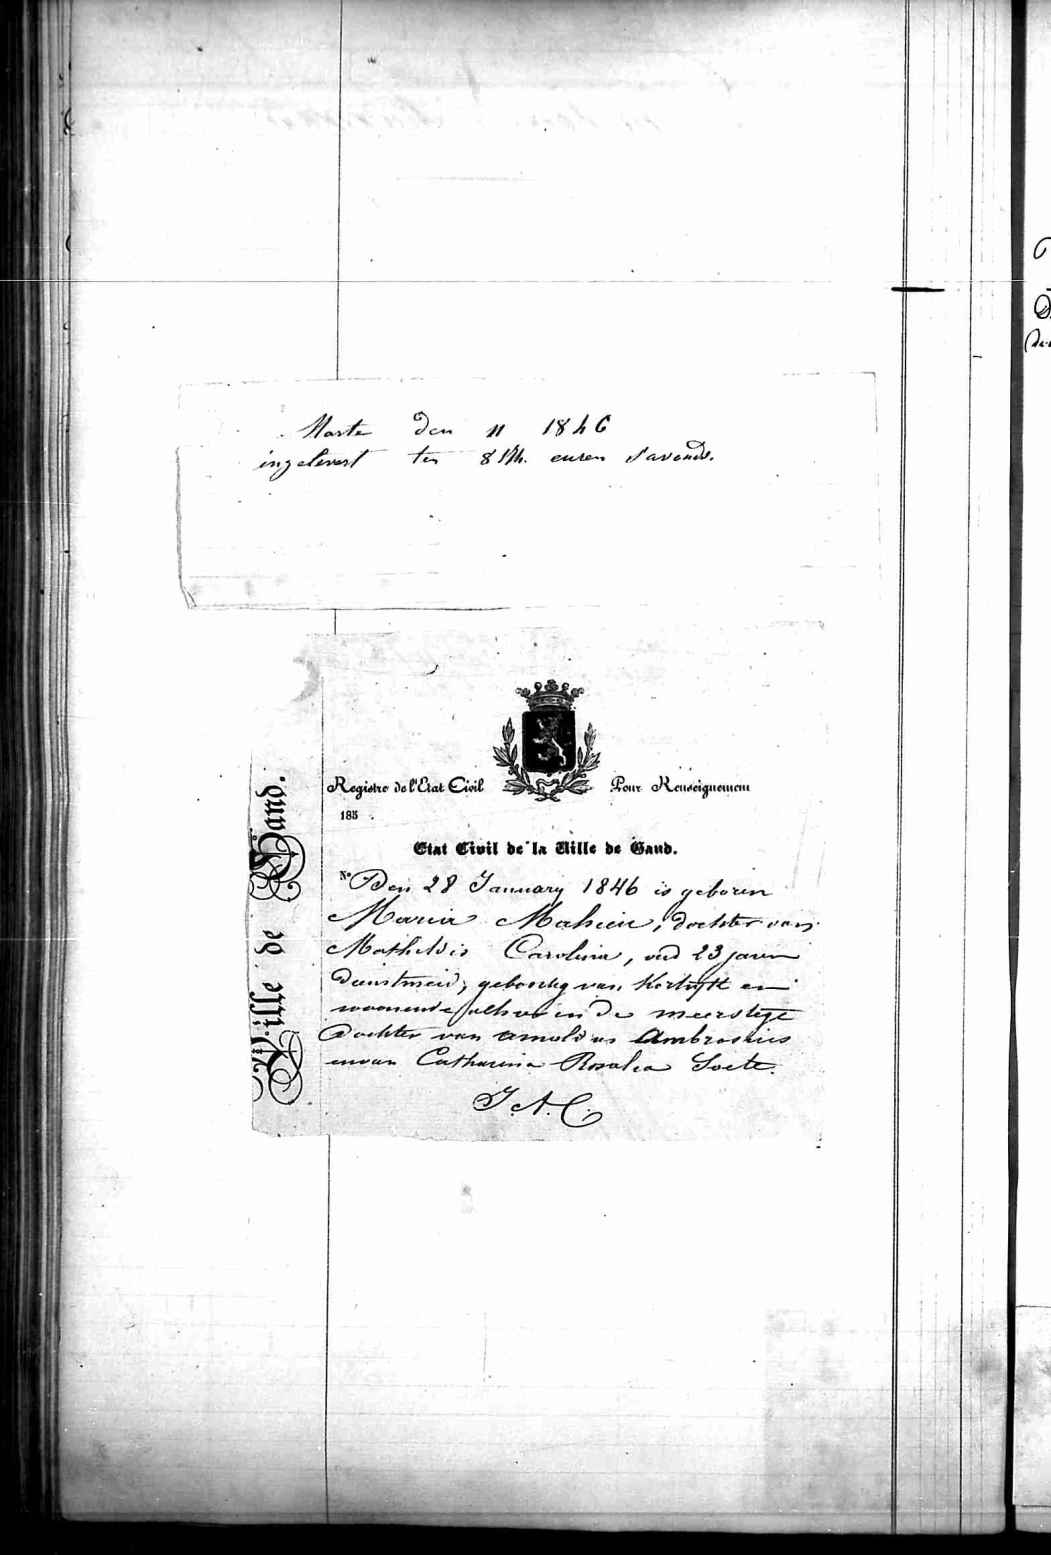 Marte den 11 1846
ingelevert ten 8 1/4. euren s'avonds.
Ville de Gand.
Registre de l'Etat Civil Pour Renseignement
185 .
Etat Civil de la Ville de Gand.
No Den 28 January 1846 is geboren
Maria Mahieu, dochter van
Mathildis Carolina, oud 23 jaren
dienstmeid, geboortig van Kortryk en
woonende alhier in de meerstege
dochter van arnoldus Ambrosius
en van Catharina Rosalia Soete.
J. A. C.